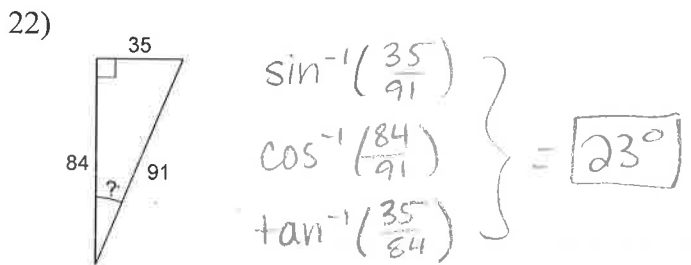 22)
35
84
91
?
sin⁻¹(35/91)
cos⁻¹(84/91)
tan⁻¹(35/84)
= 23°